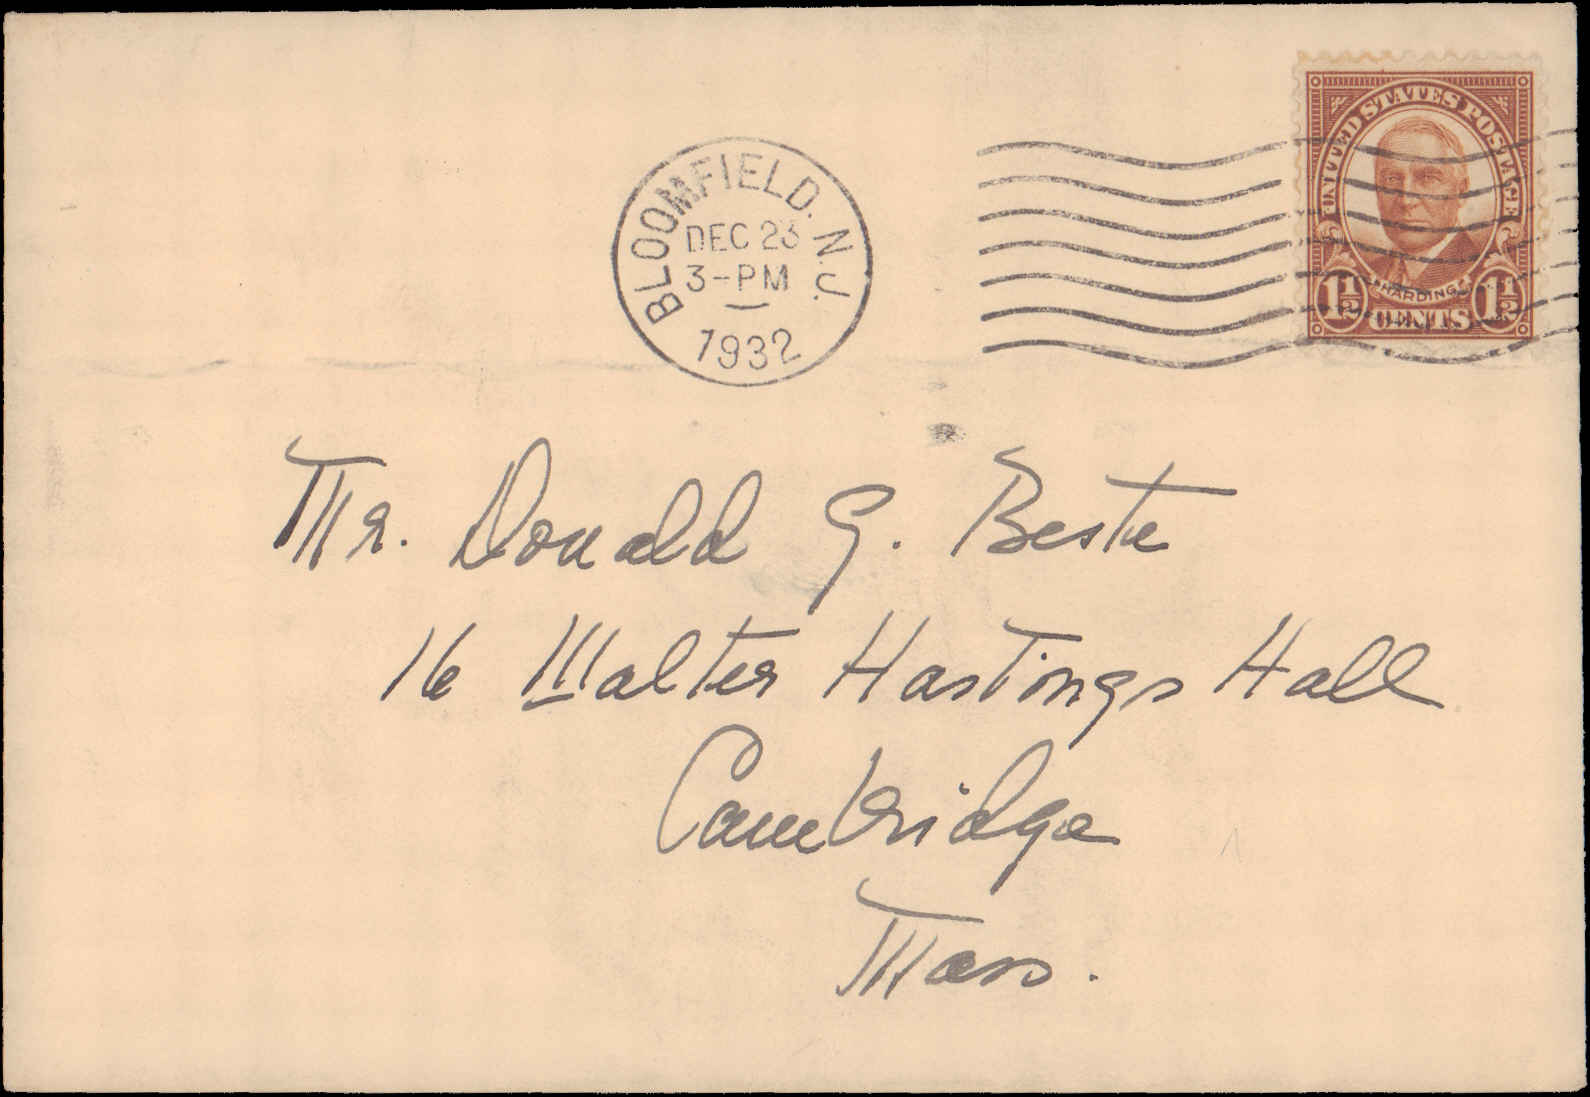 BLOOMFIELD. N.J.
DEC 23
3-PM
1932
UNITED STATES POSTAGE
HARDING
1½ CENTS 1½
Mr. Donald G. Beste
16 Walter Hastings Hall
Cambridge
Mass.